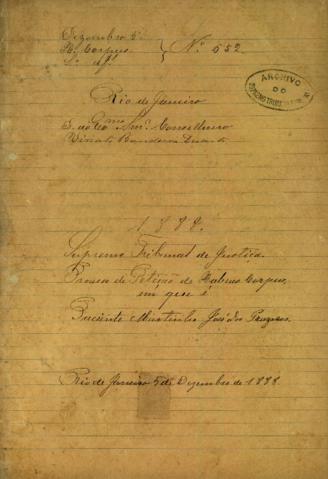 Dezembro 5
H. Corpus
Nº 552
ARCHIVO
DO
SUPREMO TRIBUNAL
Rio de Janeiro
Exmo Snr. Conselheiro
Bandeira Duarte
1888.
Supremo Tribunal de Justiça.
Petição de Habeas Corpus,
em que é
Paciente Martinho José dos Prazeres.
Rio de Janeiro 5 de Dezembro de 1888